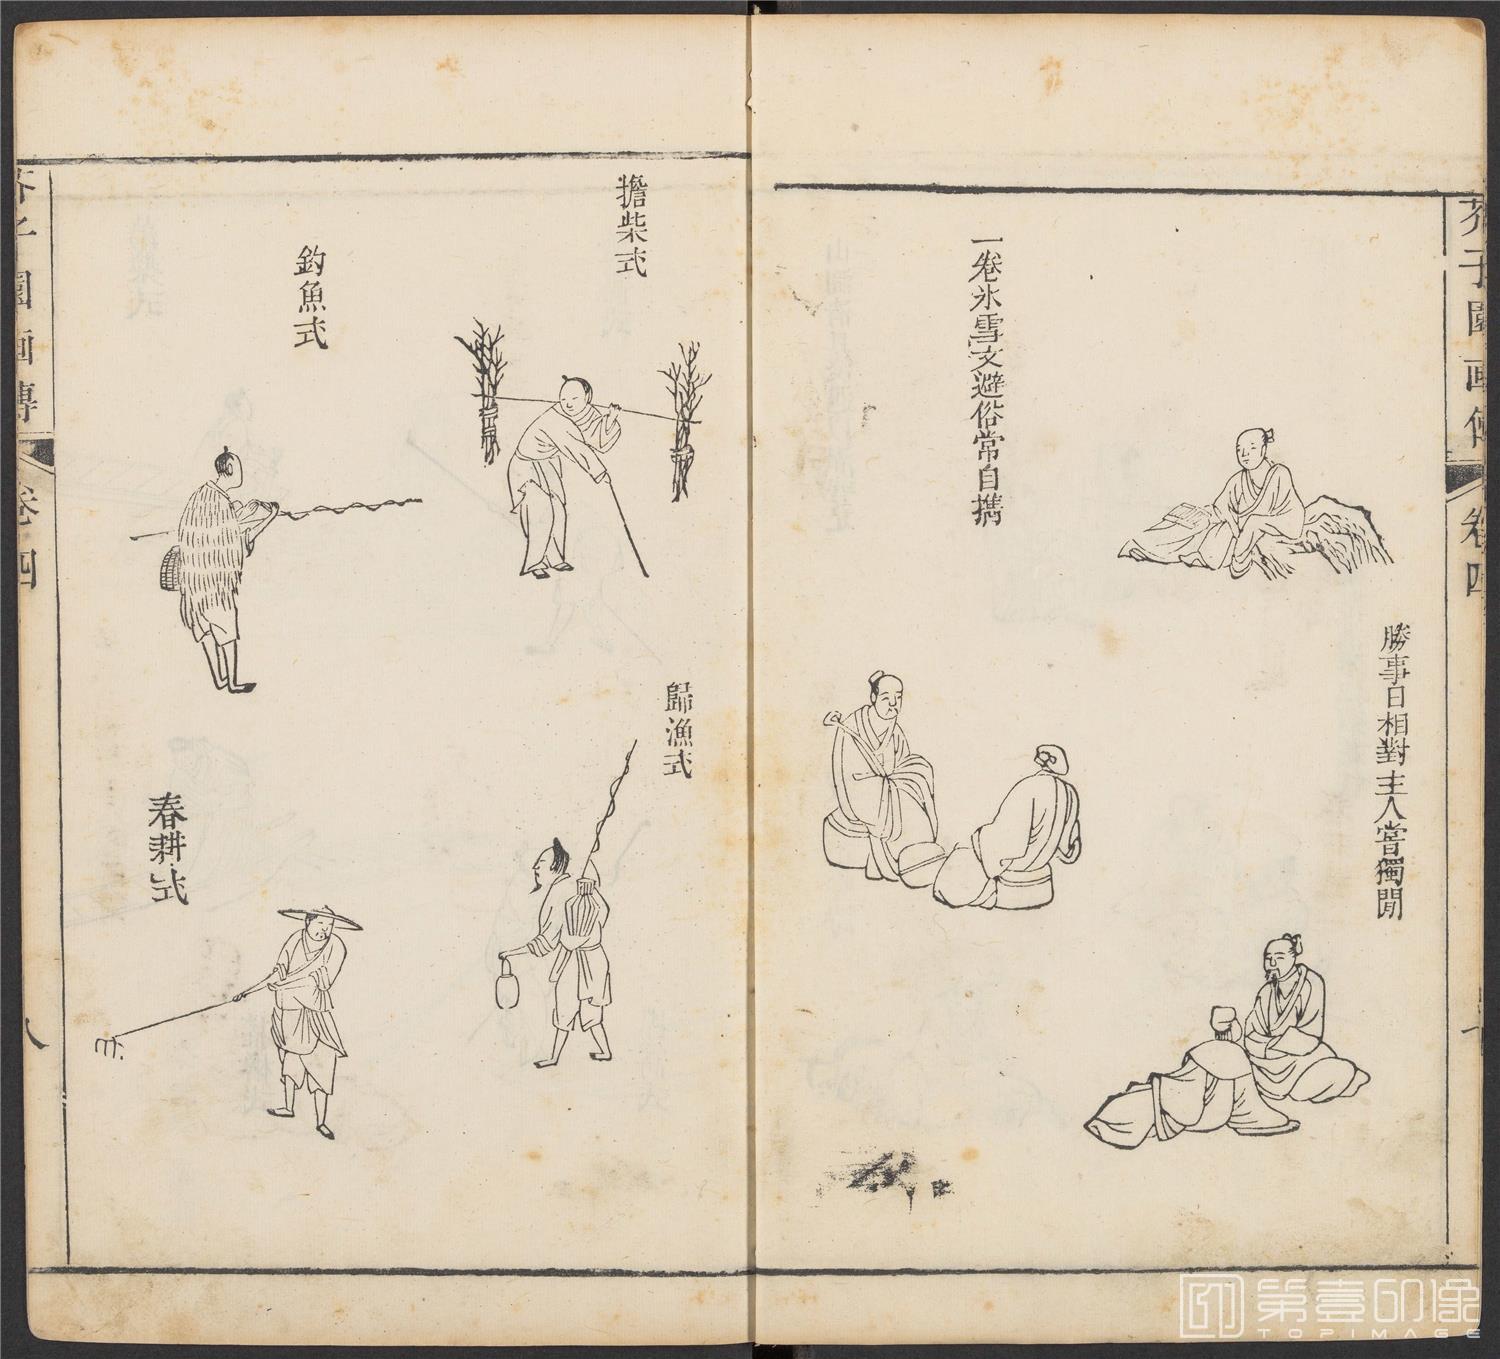 芥子園画傳
卷四
勝事日相對主人嘗獨閒
一卷氷雪文避俗常自擕
擔柴式
歸漁式
釣魚式
春耕式
芥子園画傳
卷四
八
第壹印像
TOPIMAGE